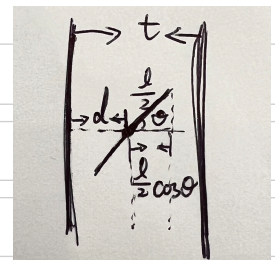 t
l/2
d θ
l/2 cosθ